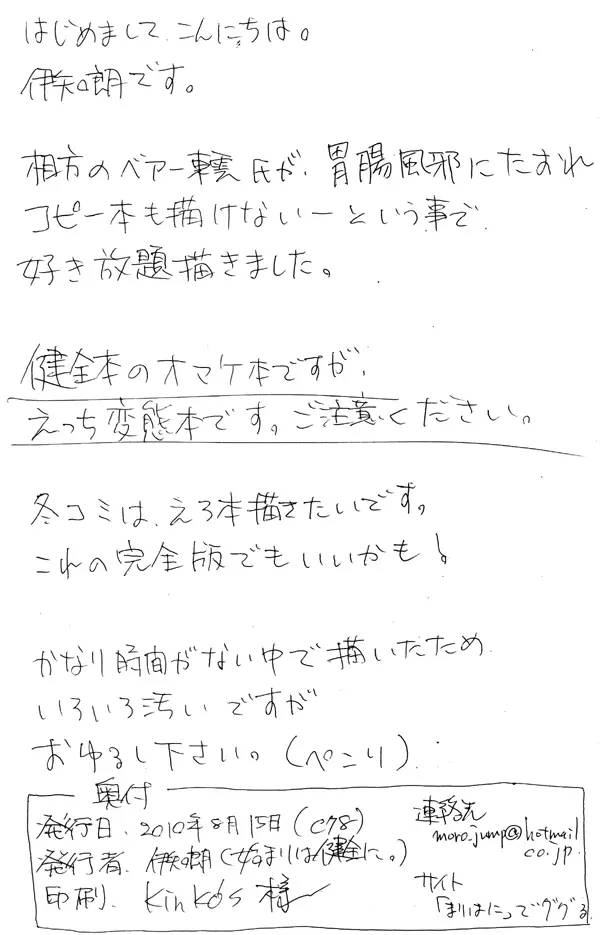 はじめまして、こんにちは。
伊知朗です。
相方のベアー轟氏が、胃腸風邪にたおれ
コピー本も描けないーという事で
好き放題描きました。
健全本のオマケ本ですが、
えっち変態本です。ご注意ください。
冬コミは、えろ本描きたいです。
これの完全版でもいいかも!
かなり時間がない中で描いたため
いろいろ汚いですが
おゆるし下さい。(ペこり)
奥付
発行日、2010年8月15日(C78)
発行者、伊知朗(始まりは健全に。)
印刷、Kinko's 様
連絡先
moro.jump@hotmail
co.jp
サイト
「まりはに」でググる